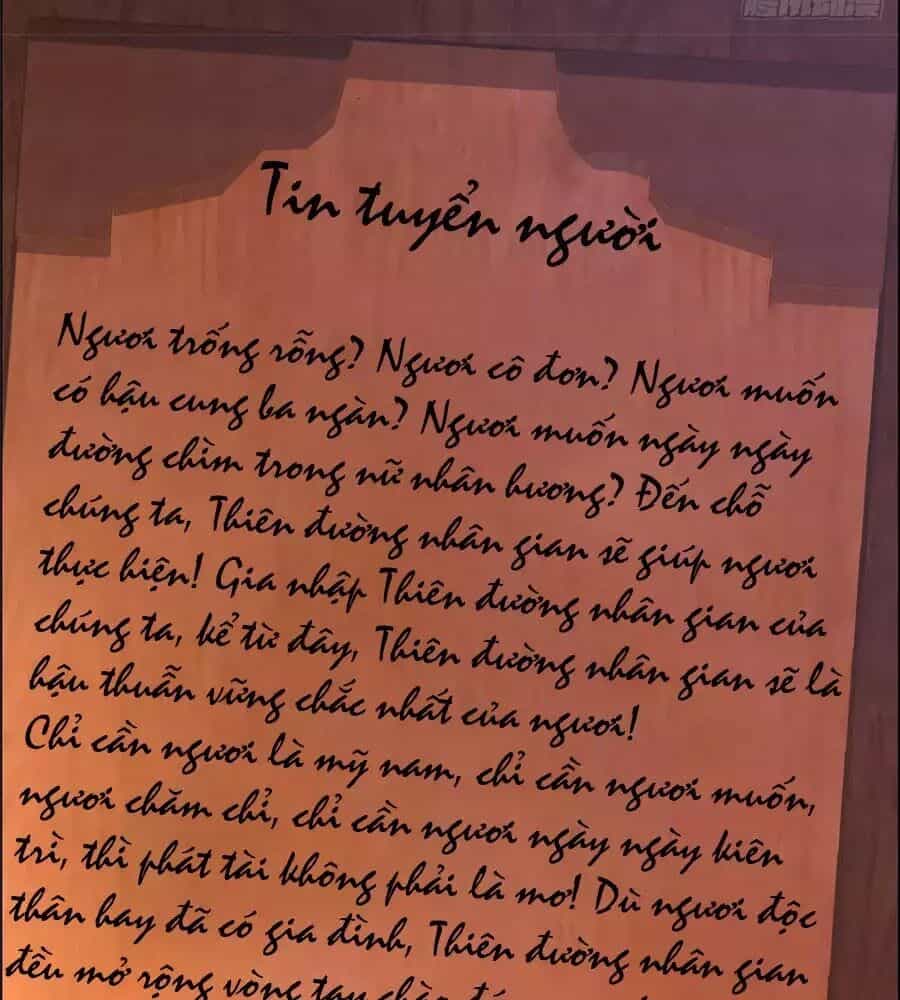 Tin tuyển người
Ngươi trống rỗng? Ngươi cô đơn? Ngươi muốn
có hậu cung ba ngàn? Ngươi muốn ngày ngày
đường chìm trong nữ nhân hương? Đến chỗ
chúng ta, Thiên đường nhân gian sẽ giúp ngươi
thực hiện! Gia nhập Thiên đường nhân gian của
chúng ta, kể từ đây, Thiên đường nhân gian sẽ là
hậu thuẫn vững chắc nhất của ngươi!
Chỉ cần ngươi là mỹ nam, chỉ cần ngươi muốn,
ngươi chăm chỉ, chỉ cần ngươi ngày ngày kiên
trì, thì phát tài không phải là mơ! Dù ngươi độc
thân hay đã có gia đình, Thiên đường nhân gian
đều mở rộng vòng tay chào